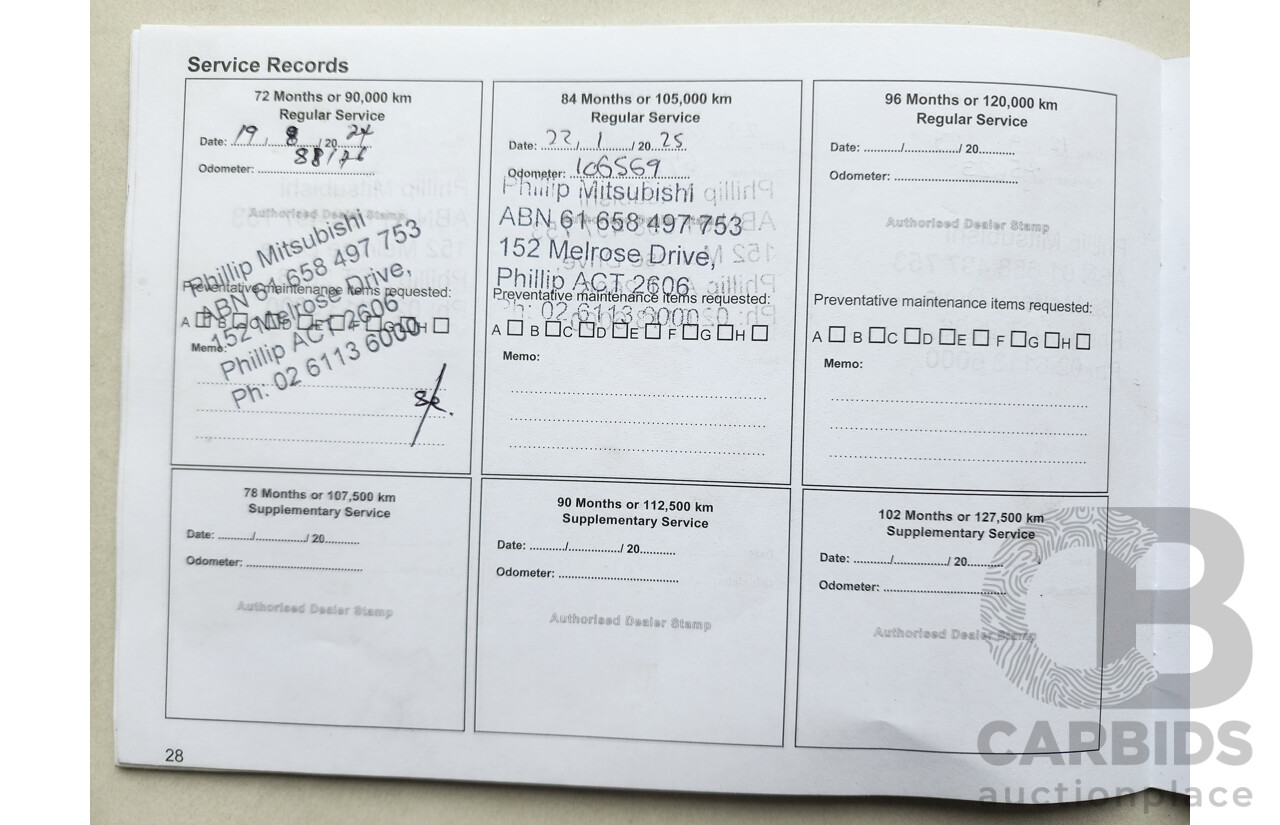 Service Records
72 Months or 90,000 km
Regular Service
Date: 19 / 8 / 20 24
Odometer: 88176
Authorised Dealer Stamp
Phillip Mitsubishi
ABN 61 658 497 753
152 Melrose Drive,
Phillip ACT 2606
Ph: 02 6113 6000
Preventative maintenance items requested:
A B C D E F G H
Memo:
84 Months or 105,000 km
Regular Service
Date: 22 / 1 / 20 25
Odometer: 106569
Phillip Mitsubishi
ABN 61 658 497 753
152 Melrose Drive,
Phillip ACT 2606
Ph: 02 6113 6000
Preventative maintenance items requested:
A B C D E F G H
Memo:
96 Months or 120,000 km
Regular Service
Date: ........../................/ 20..........
Odometer: ...................................
Authorised Dealer Stamp
Preventative maintenance items requested:
A B C D E F G H
Memo:
78 Months or 107,500 km
Supplementary Service
Date: ........../................/ 20..........
Odometer: ...................................
Authorised Dealer Stamp
90 Months or 112,500 km
Supplementary Service
Date: ........../................/ 20..........
Odometer: ...................................
Authorised Dealer Stamp
102 Months or 127,500 km
Supplementary Service
Date: ........../................/ 20..........
Odometer: ...................................
Authorised Dealer Stamp
28
CB
CARBIDS
auctionplace